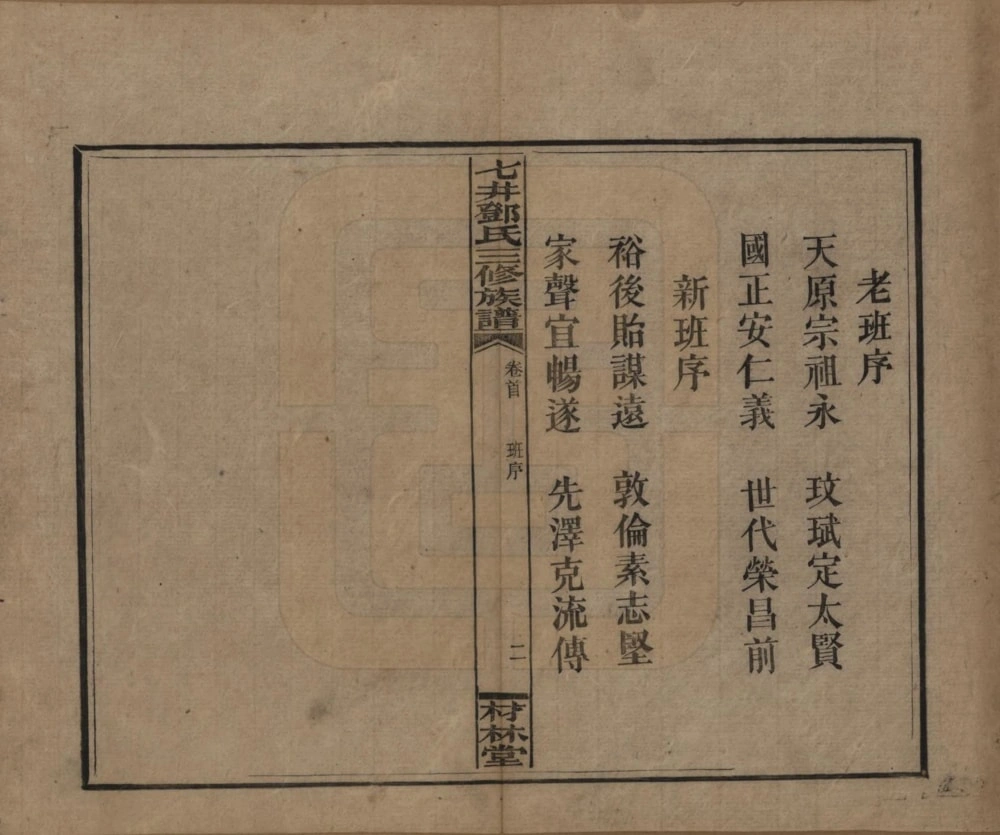 老班序
天原宗祖永　玟珷定太賢
國正安仁義　世代榮昌前
新班序
裕後貽謀遠　敦倫素志堅
家聲宜暢遂　先澤克流傳
七井鄧氏三修族譜
卷首　班序
二
材林堂